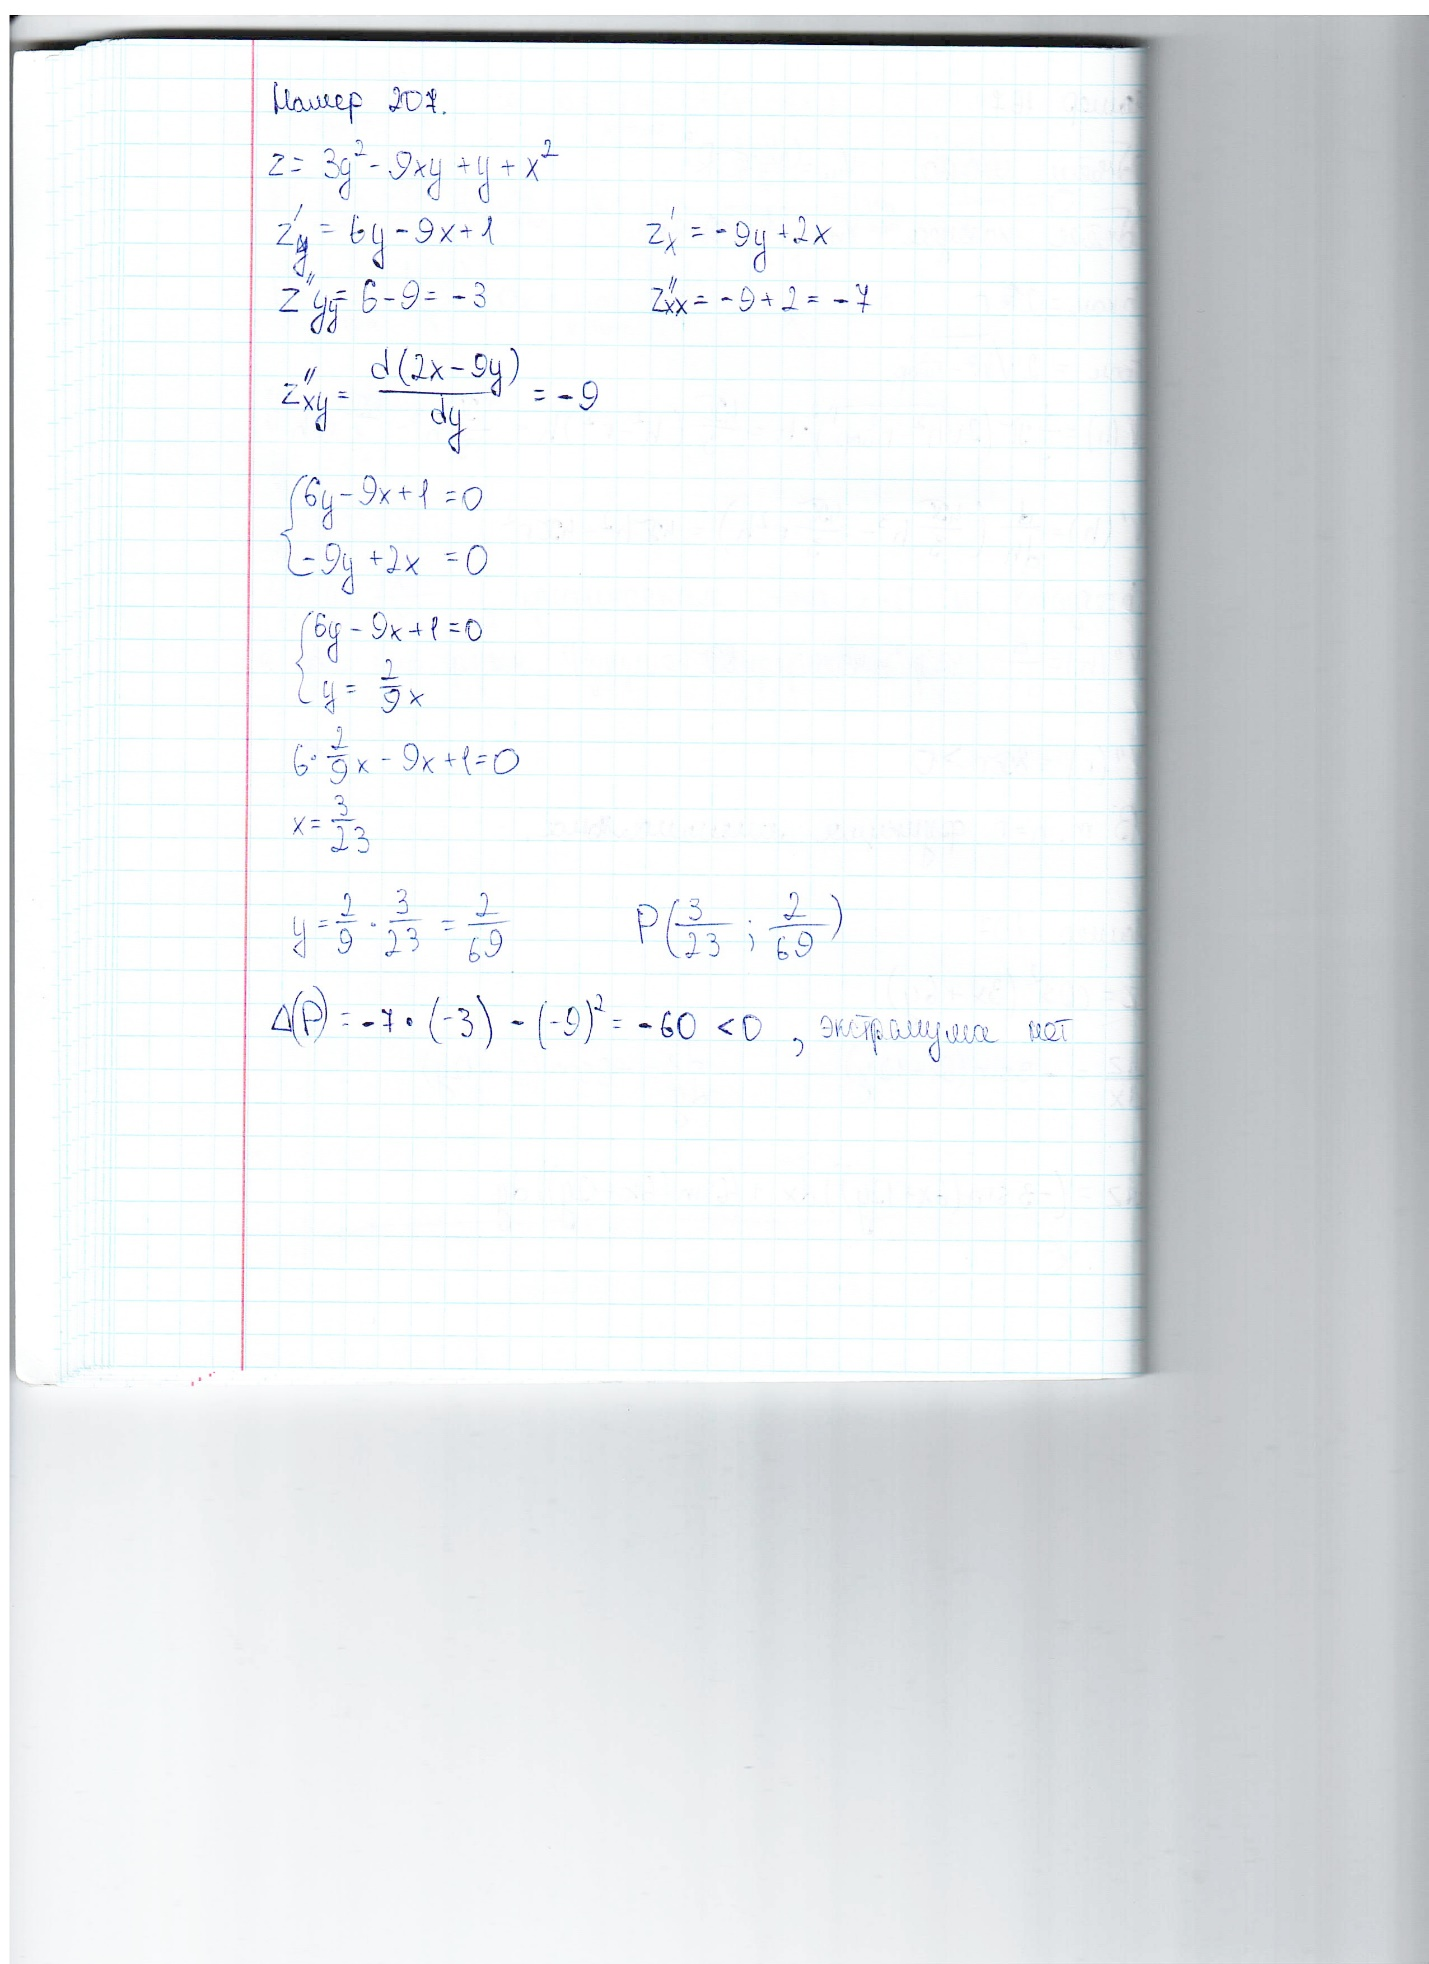 Номер 207.
z = 3y² - 9xy + y + x²
z'y = 6y - 9x + 1
z'x = -9y + 2x
z''yy = 6 - 9 = -3
z''xx = -9 + 2 = -7
z''xy = d(2x - 9y)/dy = -9
{6y - 9x + 1 = 0
{-9y + 2x = 0
{6y - 9x + 1 = 0
{y = 2/9 x
6 · 2/9 x - 9x + 1 = 0
x = 3/23
y = 2/9 · 3/23 = 2/69
P(3/23 ; 2/69)
Δ(P) = -7 · (-3) - (-9)² = -60 < 0 , экстремума нет